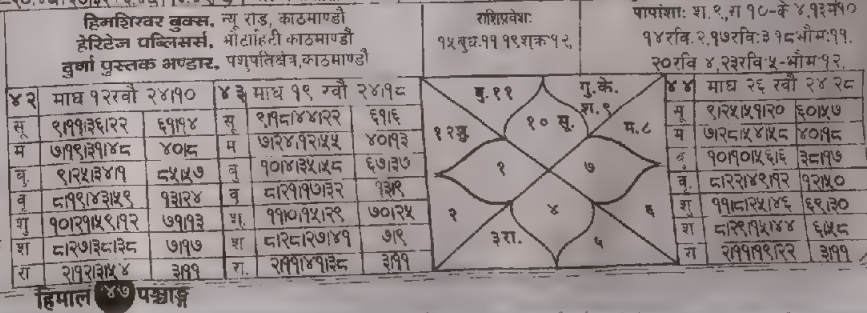 हिमशिखर बुक्स, न्यू रोड, काठमाण्डौ
हेरिटेज पब्लिसर्स, भोटाहिटी काठमाण्डौ
दुर्गा पुस्तक भण्डार, पशुपतिक्षेत्र, काठमाण्डौ
राशिप्रवेशः
१५बुधः११ १९शुक्रः१२,
पापांशाः श.९,रा १०-के ४,१३मं१०
१४रवि.२,१७रविः३ १८भौमः११.
२०रवि ४,२३रविः५-भौमः१२.
४२ माघ १२रवौ २४।१०
सू ९।११।३६।२२ ६१।१४
मं ७।१९।३९।४८ ४०।८
बु. ९।२५।३४।१ ८५।५७
बृ ८।१९।४३।५९ १३।२४
शु १०।२१।५९।१२ ७१।१३
श ८।२७।३८।३८ ७।१७
रा २।१२।३।५४ ३।११
४३ माघ १९ रवौ २४।१८
सू ९।१८।४४।२२ ६१।६
मं ७।२४।१२।५५ ४०।१३
बु १०।४।३५।५८ ६७।३७
बृ ८।२१।१७।३२ १३।९
शु. ११।०।१५।२९ ७०।२५
श ८।२८।२७।४१ ७।९
रा. २।११।४१।३८ ३।११
बु.११
गु.के.
श.९
१२शु
१० सू.
मं.८
१
७
२
४
६
३रा.
५
४४ माघ २६ रवौ २४ २८
सू ९।२५।५१।२० ६०।५७
मं ७।२८।५४।५८ ४०।१८
बु १०।१०।५६।६ ३८।१७
बृ. ८।२२।४९।१२ १२।५०
शु ११।८।२५।४६ ६९।३०
श ८।२९।१५।४४ ६।५८
रा २।११।१९।२२ ३।११
हिमाल ४७ पञ्चाङ्ग